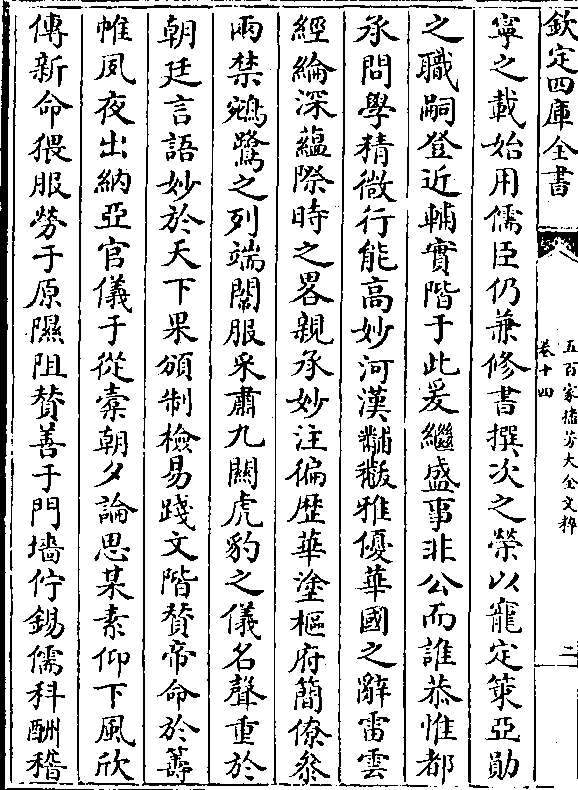 欽定四庫全書
五百家播芳大全文粹
卷十四
二
寧之載始用儒臣仍兼修書撰次之榮以寵定策亞勛
之職嗣登近輔實階于此爰繼盛事非公而誰恭惟都
承問學精微行能高妙河漢黼黻雅優華國之辭雷雲
經綸深蘊際時之畧親承妙注徧歷華塗樞府簡僚參
兩禁鵷鷺之列端闈服采肅九關虎豹之儀名聲重於
朝廷言語妙於天下果頒制檢易踐文階贊帝命於籌
帷夙夜出納亞官儀于從橐朝夕論思某素仰下風欣
傳新命猥服勞于原隰阻贊善于門墻佇錫儒科酬稽